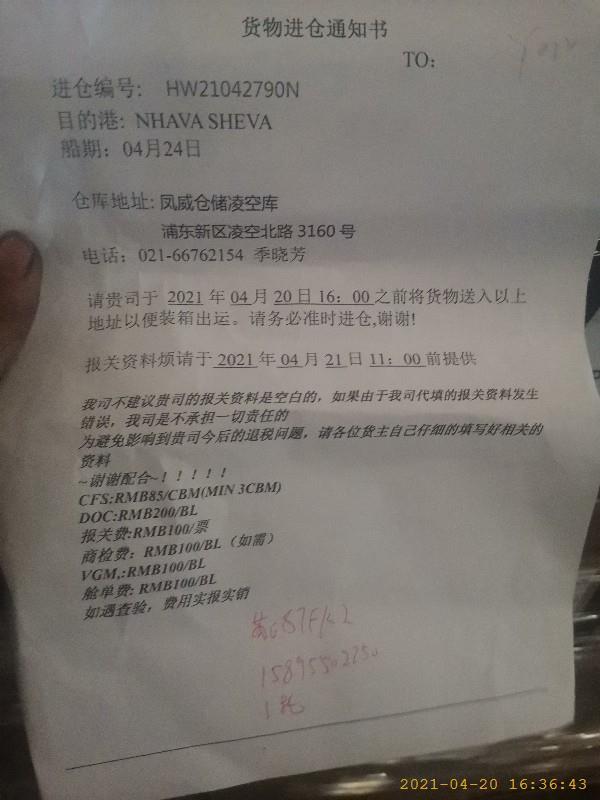 货物进仓通知书
TO:
进仓编号: HW21042790N
目的港: NHAVA SHEVA
船期: 04月24日
仓库地址: 凤威仓储凌空库
浦东新区凌空北路 3160 号
电话: 021-66762154 季晓芳
请贵司于 2021 年 04 月 20 日 16: 00 之前将货物送入以上
地址以便装箱出运。请务必准时进仓,谢谢!
报关资料烦请于 2021 年 04 月 21 日 11: 00 前提供
我司不建议贵司的报关资料是空白的，如果由于我司代填的报关资料发生
错误，我司是不承担一切责任的
为避免影响到贵司今后的退税问题，请各位货主自己仔细的填写好相关的
资料
~谢谢配合~！！！！！
CFS:RMB85/CBM(MIN 3CBM)
DOC:RMB200/BL
报关费:RMB100/票
商检费: RMB100/BL（如需）
VGM,:RMB100/BL
舱单费: RMB100/BL
如遇查验，费用实报实销
2021-04-20 16:36:43